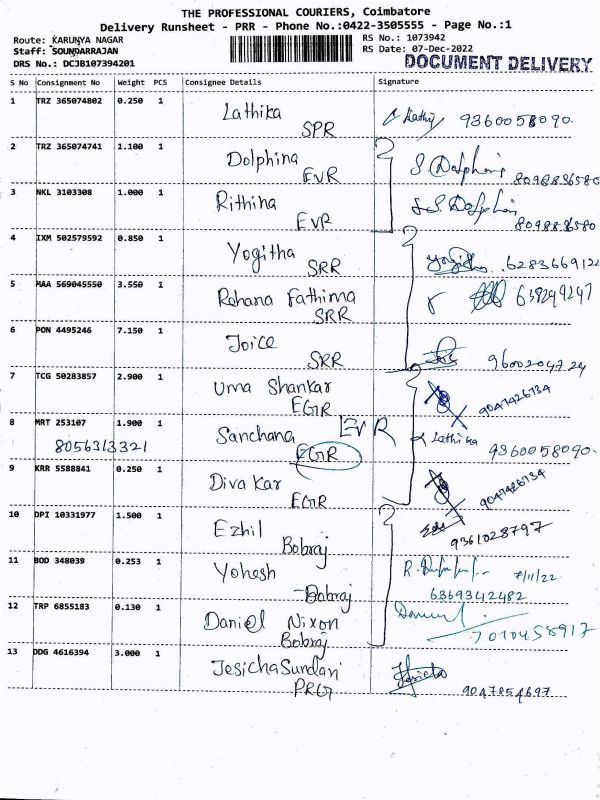 THE PROFESSIONAL COURIERS, Coimbatore
Delivery Runsheet - PRR - Phone No.:0422-3505555 - Page No.:1
Route: KARUNYA NAGAR RS No.: 1073942
Staff: SOUNDARRAJAN RS Date: 07-Dec-2022
DRS No.: DCJB107394201 DOCUMENT DELIVERY
S No Consignment No Weight PCS Consignee Details Signature
1 TRZ 365074802 0.250 1 Lathika
SPR 9360058090.
2 TRZ 365074741 1.100 1 Dolphina
EVR 8098836580
3 NKL 3103308 1.000 1 Rithina
EVR 8098836580
4 IXM 502579592 0.850 1 Yogitha
SRR 6283669122
5 MAA 569045550 3.550 1 Rehana Fathima
SRR 639299247
6 PON 4495246 7.150 1 Joice
SRR 9600204724
7 TCG 50283857 2.900 1 Uma Shankar
EGR 9047426734
8 MRT 253107 1.900 1 Sanchana EVR Lathika
8056313321 EGR 9360058090.
9 KRR 5588841 0.250 1 Divakar
EGR 9047426734
10 DPI 10331977 1.500 1 Ezhil
Bobraj 9361028797
11 BOD 348039 0.253 1 Yohesh 7/11/22.
Bobraj 6369342482
12 TRP 6855183 0.130 1 Daniel Nixon
Bobraj 7010458917
13 DDG 4616394 3.000 1 JesichaSundari
PRG 9047854697